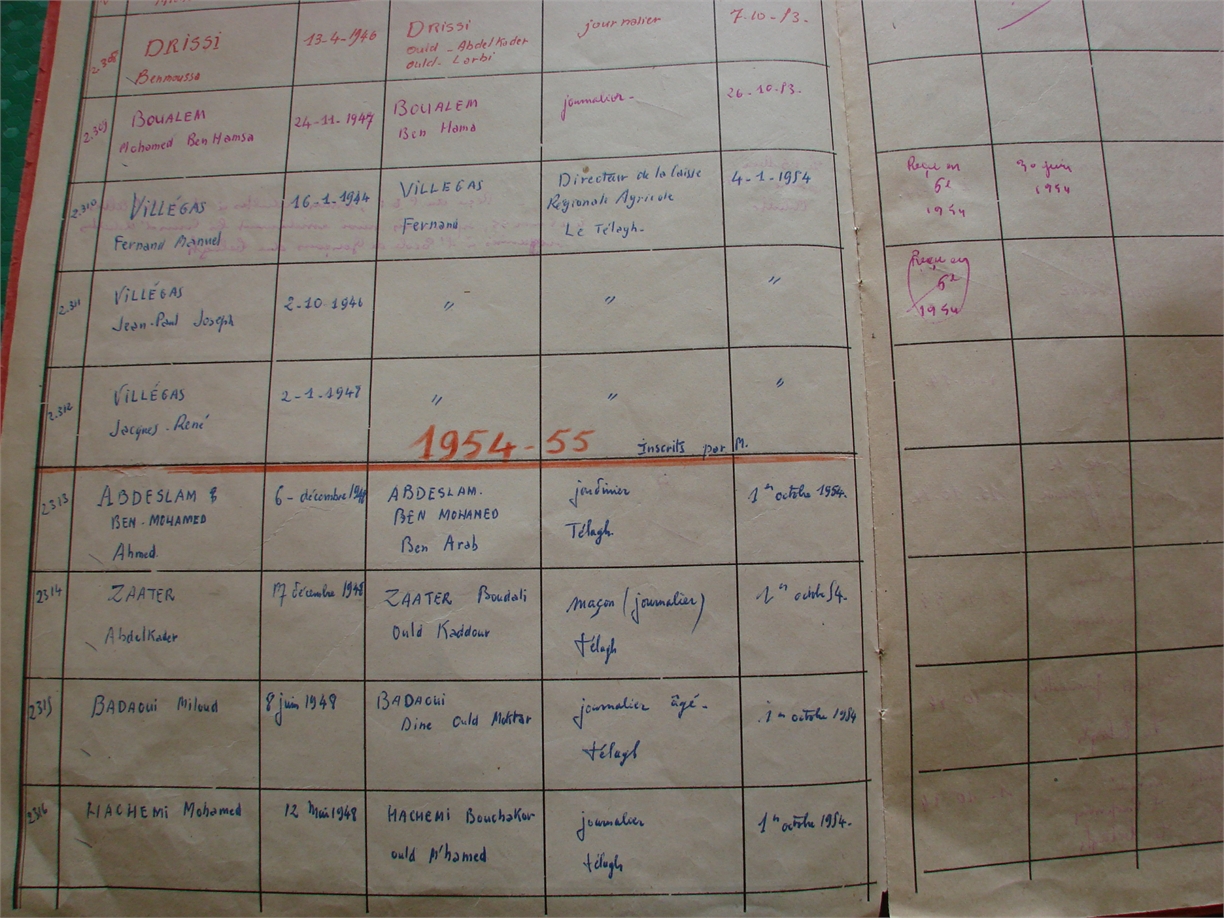 2.308
DRISSI
Benmoussa
13-4-1946
DRISSI
ould - Abdelkader
ould - Larbi
journalier
7.10-53.
2.309
BOUALEM
Mohamed Ben Hamsa
24-11-1947
BOUALEM
Ben Hama
journalier-
26-10-53.
2.310
VILLÉGAS
Fernand Manuel
16-1-1944
VILLÉGAS
Fernand
Directeur de la Caisse
Régionale Agricole
Le Télagh-
4-1-1954
Reçu en
6e
1954
30 juin
1954
2.311
VILLÉGAS
Jean-Paul Joseph
2-10-1946
"
"
"
Reçu en
6e
1954
2.312
VILLÉGAS
Jacques-René
2-1-1948
"
"
"
1954-55 Inscrits par M.
2313
ABDESLAM
BEN-MOHAMED
Ahmed
6 - décembre 1948
ABDESLAM.
BEN MOHAMED
Ben Arab
jardinier
Télagh.
1er octobre 1954.
2314
ZAATER
Abdelkader
17 décembre 1948
ZAATER Boudali
Ould Kaddour
maçon (journalier)
télagh
1er octobre 54.
2315
BADAOUI Miloud
8 juin 1948
BADAOUI
Dine Ould Moktar
journalier âgé-
télagh
1er octobre 1954
2316
HACHEMI Mohamed
12 Mai 1948
HACHEMI Bouchakor
ould M'hamed
journalier
télagh
1er octobre 1954.